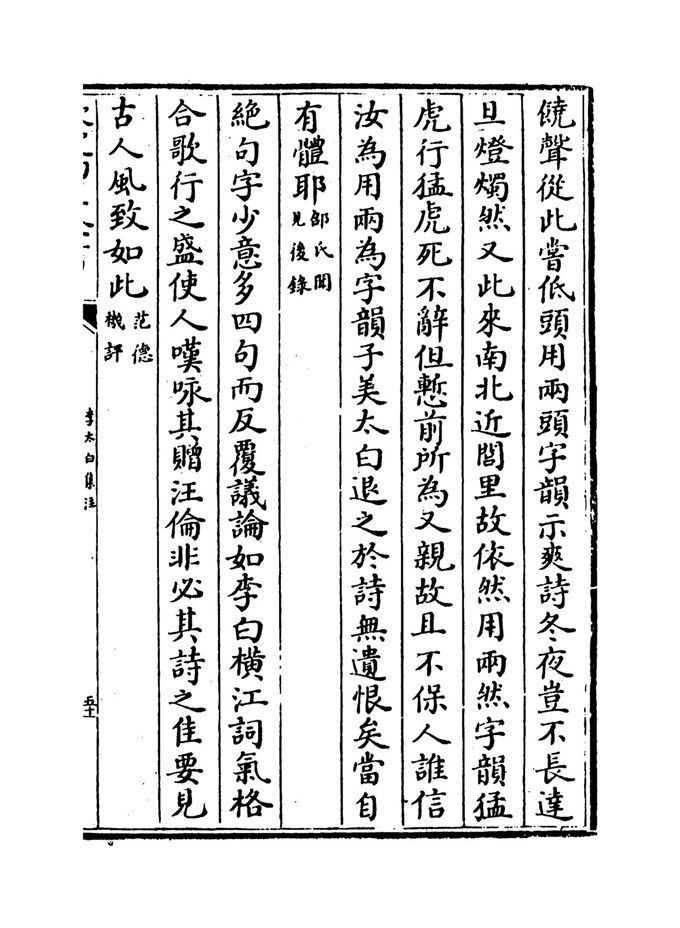 饒聲從此嘗低頭用兩頭字韻示爽詩冬夜豈不長達
旦燈燭然又此來南北近閭里故依然用兩然字韻猛
虎行猛虎死不辭但慙前所為又親故且不保人誰信
汝為用兩為字韻子美太白退之於詩無遺恨矣當自
有體耶邵氏聞見後錄
絶句字少意多四句而反覆議論如李白橫江詞氣格
合歌行之盛使人嘆咏其贈汪倫非必其詩之佳要見
古人風致如此范德機評
李太白集注
五十